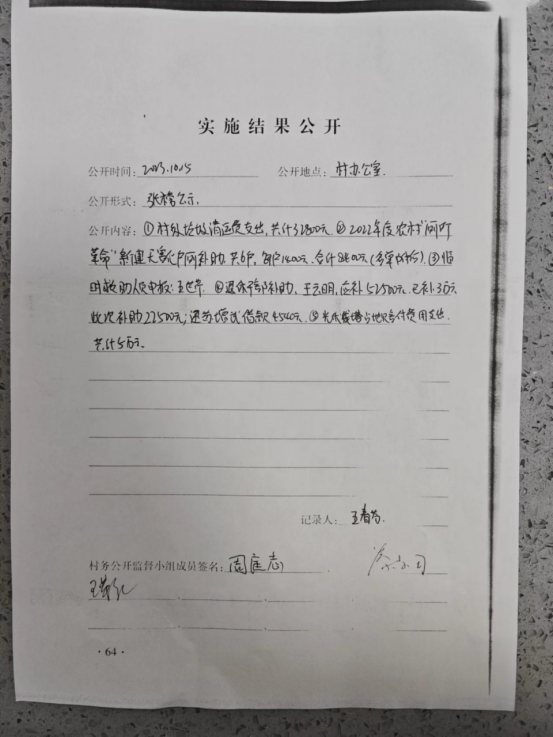 实施结果公开
公开时间: 2023.10.15 公开地点: 村办公室
公开形式: 张榜公示.
公开内容: ①村外垃圾清运费支出,共计32800元 ②2022年度农村“厕所
革命”新建无害化户厕补助 共6户, 每户1400元. 合计8400元 ③临
时救助人员申报: 王世华 ④退休干部补助. 王云明, 应补52500元. 已补3万元
此次补助22500元; 4540元. ⑤费用支出.
共计5万元.
记录人: 王春芳.
村务公开监督小组成员签名: 周庭志
· 64 ·